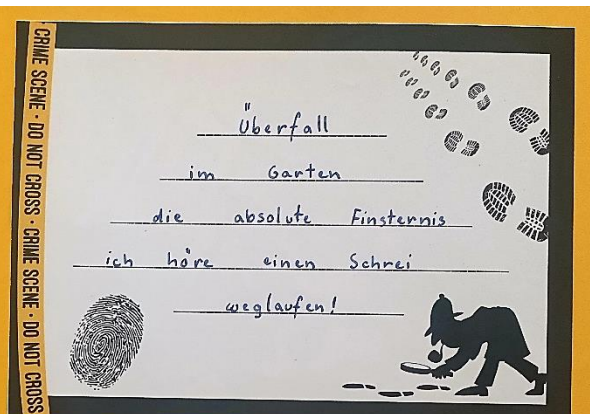 CRIME SCENE · DO NOT CROSS · CRIME SCENE · DO NOT CROSS
Überfall
im Garten
die absolute Finsternis
ich höre einen Schrei
weglaufen!